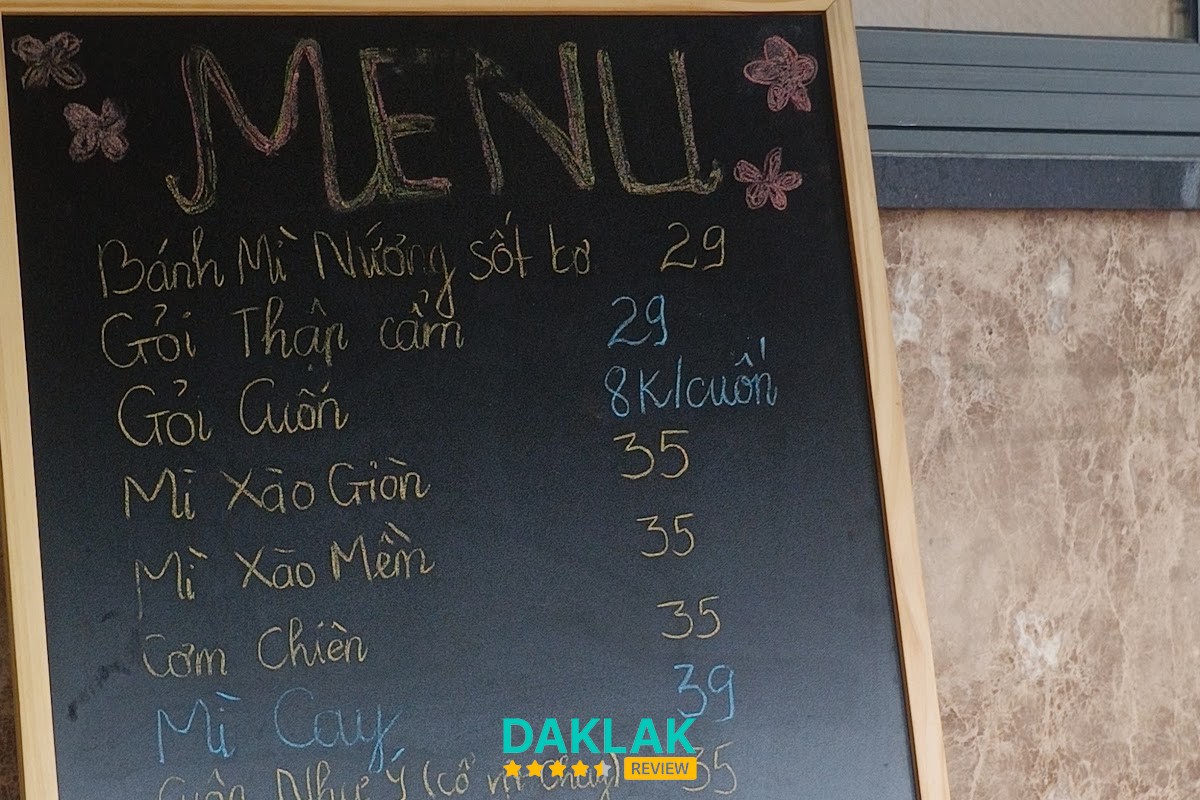 MENU
Bánh Mì Nướng sốt bơ 29
Gỏi Thập cẩm 29
Gỏi Cuốn 8K/cuốn
Mì Xào Giòn 35
Mì Xào Mềm 35
Cơm Chiên 35
Mì Cay 39
Cuộn Như Ý (cổ 35
DAKLAK
REVIEW